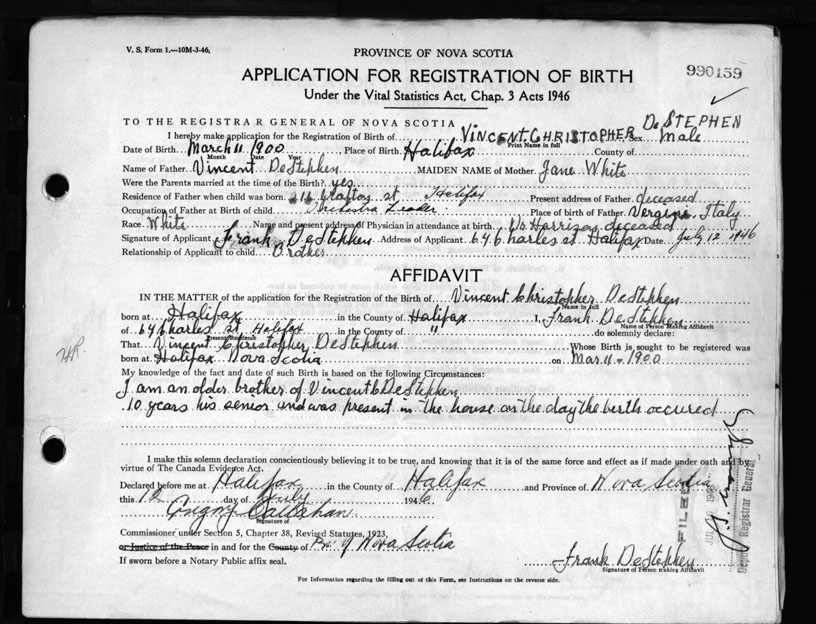 V. S. Form 1.—10M-3-46,
PROVINCE OF NOVA SCOTIA
990159
APPLICATION FOR REGISTRATION OF BIRTH
Under the Vital Statistics Act, Chap. 3 Acts 1946
TO THE REGISTRAR GENERAL OF NOVA SCOTIA
I hereby make application for the Registration of Birth of VINCENT CHRISTOPHER DeSTEPHEN Sex Male
Print Name in full
Date of Birth March 11 1900 Place of Birth Halifax County of
Month Date Year
Name of Father Vincent DeStephen MAIDEN NAME of Mother Jane White
Were the Parents married at the time of the Birth? yes
Residence of Father when child was born St Halifax Present address of Father deceased
Occupation of Father at Birth of child Orchestra Leader Place of birth of Father Italy
Race White Name and present address of Physician in attendance at birth Dr Harrison deceased
Signature of Applicant Frank DeStephen Address of Applicant 64 Charles st Halifax Date July 12 1946
Relationship of Applicant to child Brother
AFFIDAVIT
IN THE MATTER of the application for the Registration of the Birth of Vincent Christopher DeStephen
Name in full
born at Halifax in the County of Halifax I, Frank DeStephen
Name of Person Making Affidavit
of 64 Charles st Halifax in the County of " do solemnly declare:
Present Residence
That Vincent Christopher DeStephen Whose Birth is sought to be registered was
born at Halifax Nova Scotia on Mar 11 - 1900
My knowledge of the fact and date of such Birth is based on the following Circumstances:
I am an older brother of Vincent C DeStephen
10 years his senior and was present in the house on the day the berth occured
I make this solemn declaration conscientiously believing it to be true, and knowing that it is of the same force and effect as if made under oath and by
virtue of The Canada Evidence Act.
Declared before me at Halifax in the County of Halifax and Province of Nova Scotia
this 12 day of July 1946
Callahan
Signature of
Commissioner under Section 5, Chapter 38, Revised Statutes, 1923,
or Justice of the Peace in and for the County of Pro. of Nova Scotia
If sworn before a Notary Public affix seal.
Frank DeStephen
Signature of Person making Affidavit
For Information regarding the filling out of this Form, see Instructions on the reverse side.
FILED
Deputy Registrar General